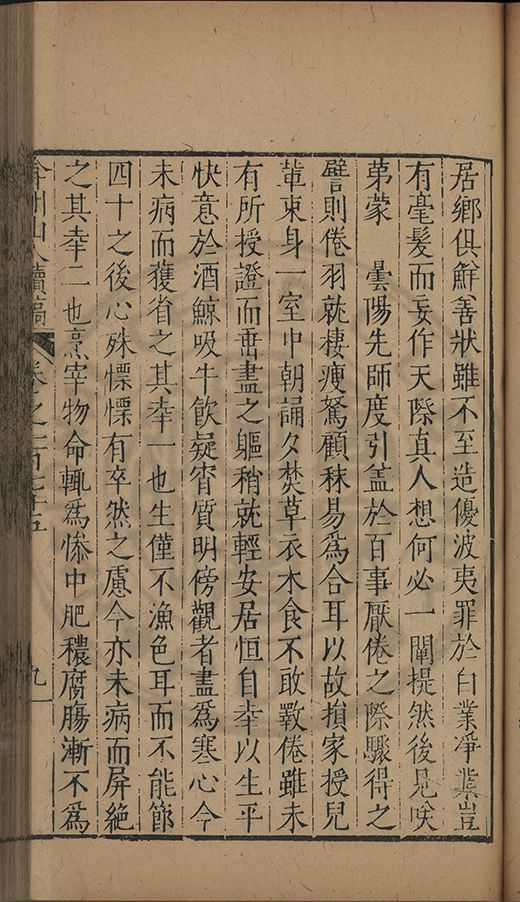 居鄉俱鮮善狀雖不至造優波夷罪於白業淨業豈
有毫髮而妄作天際真人想何必一闡提然後見唉
苐蒙　曇陽先師度引葢於百事厭倦之際驟得之
譬則倦羽就棲瘦駑顧秣易為合耳以故損家授兒
輩束身一室中朝誦夕焚草衣木食不敢斁倦雖未
有所授證而臿盡之軀稍就輕安居恒自幸以生平
快意於酒鯨吸牛飲凝宵質明傍觀者盡為寒心今
未病而獲省之其幸一也生僅不漁色耳而不能節
四十之後心殊慄慄有卒然之慮今亦未病而屏絕
之其幸二也烹宰物命輒為慘中肥穠腐腸漸不為
弇州山人續稿　卷之一百七十五　九